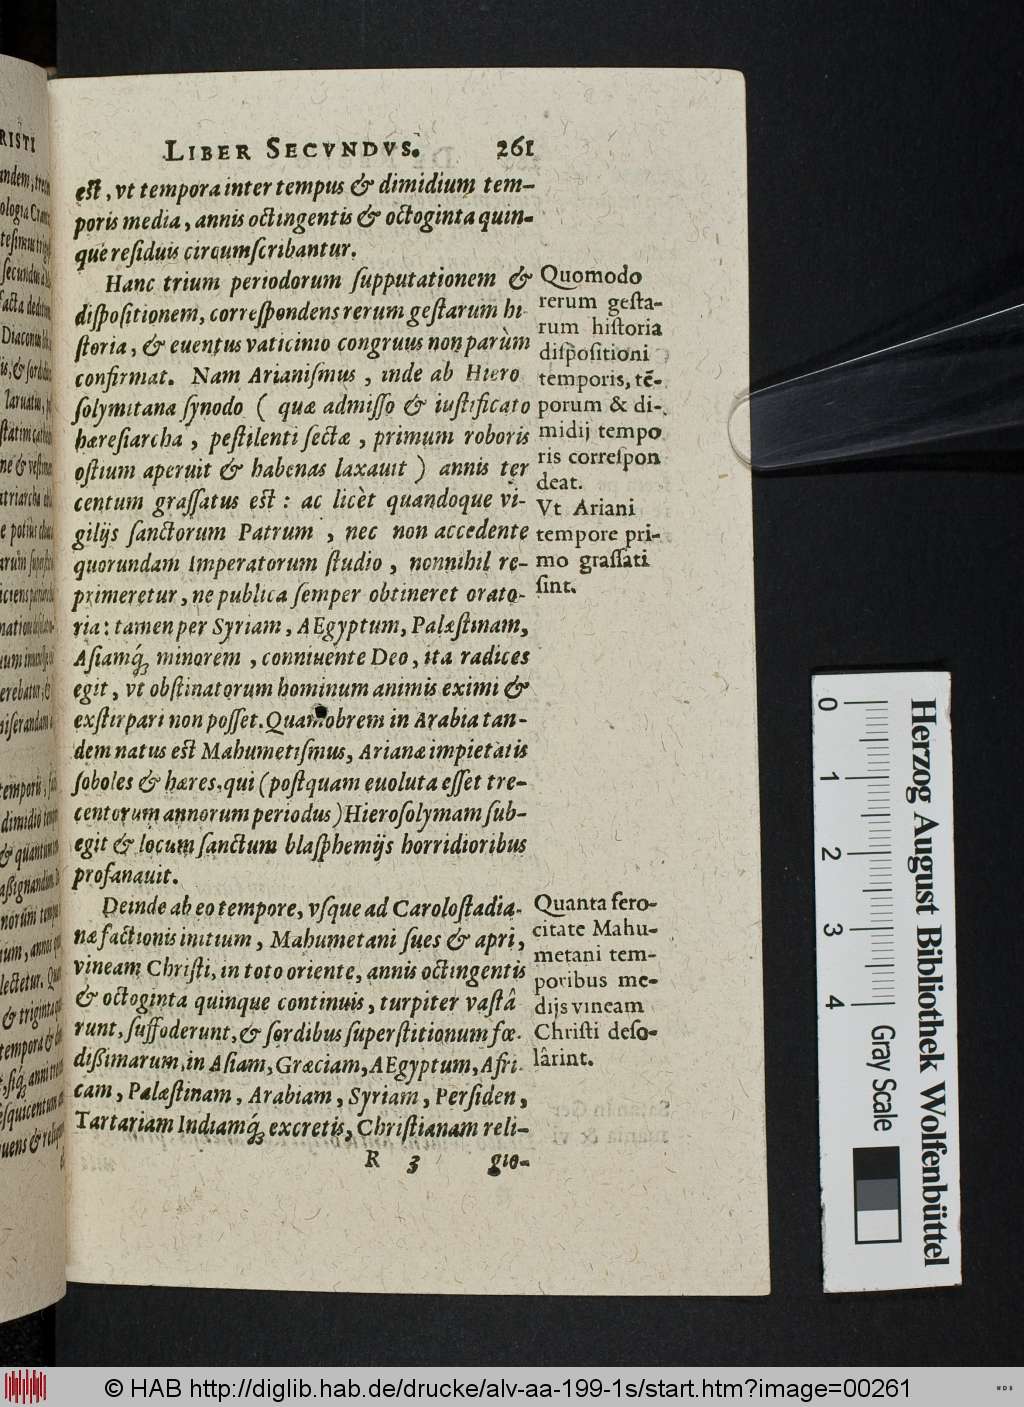 LIBER SECVNDVS. 261
est, vt tempora inter tempus & dimidium tem-
poris media, annis octingentis & octoginta quin-
que residuis circumscribantur.
Hanc trium periodorum supputationem &
dispositionem, correspondens rerum gestarum hi
storia, & euentus vaticinio congruus non parùm
confirmat. Nam Arianismus, inde ab Hiero
solymitana synodo ( quæ admisso & iustificato
hæresiarcha, pestilenti sectæ, primum roboris
ostium aperuit & habenas laxauit ) annis ter
centum grassatus est: ac licèt quandoque vi-
gilijs sanctorum Patrum, nec non accedente
quorundam Imperatorum studio, nonnihil re-
primeretur, ne publica semper obtineret orato-
ria: tamen per Syriam, AEgyptum, Palæstinam,
Asiamq́; minorem, conniuente Deo, ita radices
egit, vt obstinatorum hominum animis eximi &
exstirpari non posset. Quamobrem in Arabia tan-
dem natus est Mahumetismus, Arianæ impietatis
soboles & hæres, qui (postquam euoluta esset tre-
centorum annorum periodus) Hierosolymam sub-
egit & locum sanctum blasphemijs horridioribus
profanauit.
Deinde ab eo tempore, vsque ad Carolostadia-
næ factionis initium, Mahumetani sues & apri,
vineam Christi, in toto oriente, annis octingentis
& octoginta quinque continuis, turpiter vastâ
runt, suffoderunt, & sordibus superstitionum fœ-
dißimarum, in Asiam, Græciam, AEgyptum, Afri-
cam, Palæstinam, Arabiam, Syriam, Persiden,
Tartariam Indiamq́; excretis, Christianam reli-
R 3 gio-
Quomodo
rerum gesta-
rum historia
dispositioni
temporis, tē-
porum & di-
midij tempo
ris correspon
deat.
Vt Ariani
tempore pri-
mo grassati
sint.
Quanta fero-
citate Mahu-
metani tem-
poribus me-
dijs vineam
Christi deso-
lârint.
RISTI
0 1 2 3 4
Herzog August Bibliothek Wolfenbüttel
Gray Scale
© HAB http://diglib.hab.de/drucke/alv-aa-199-1s/start.htm?image=00261